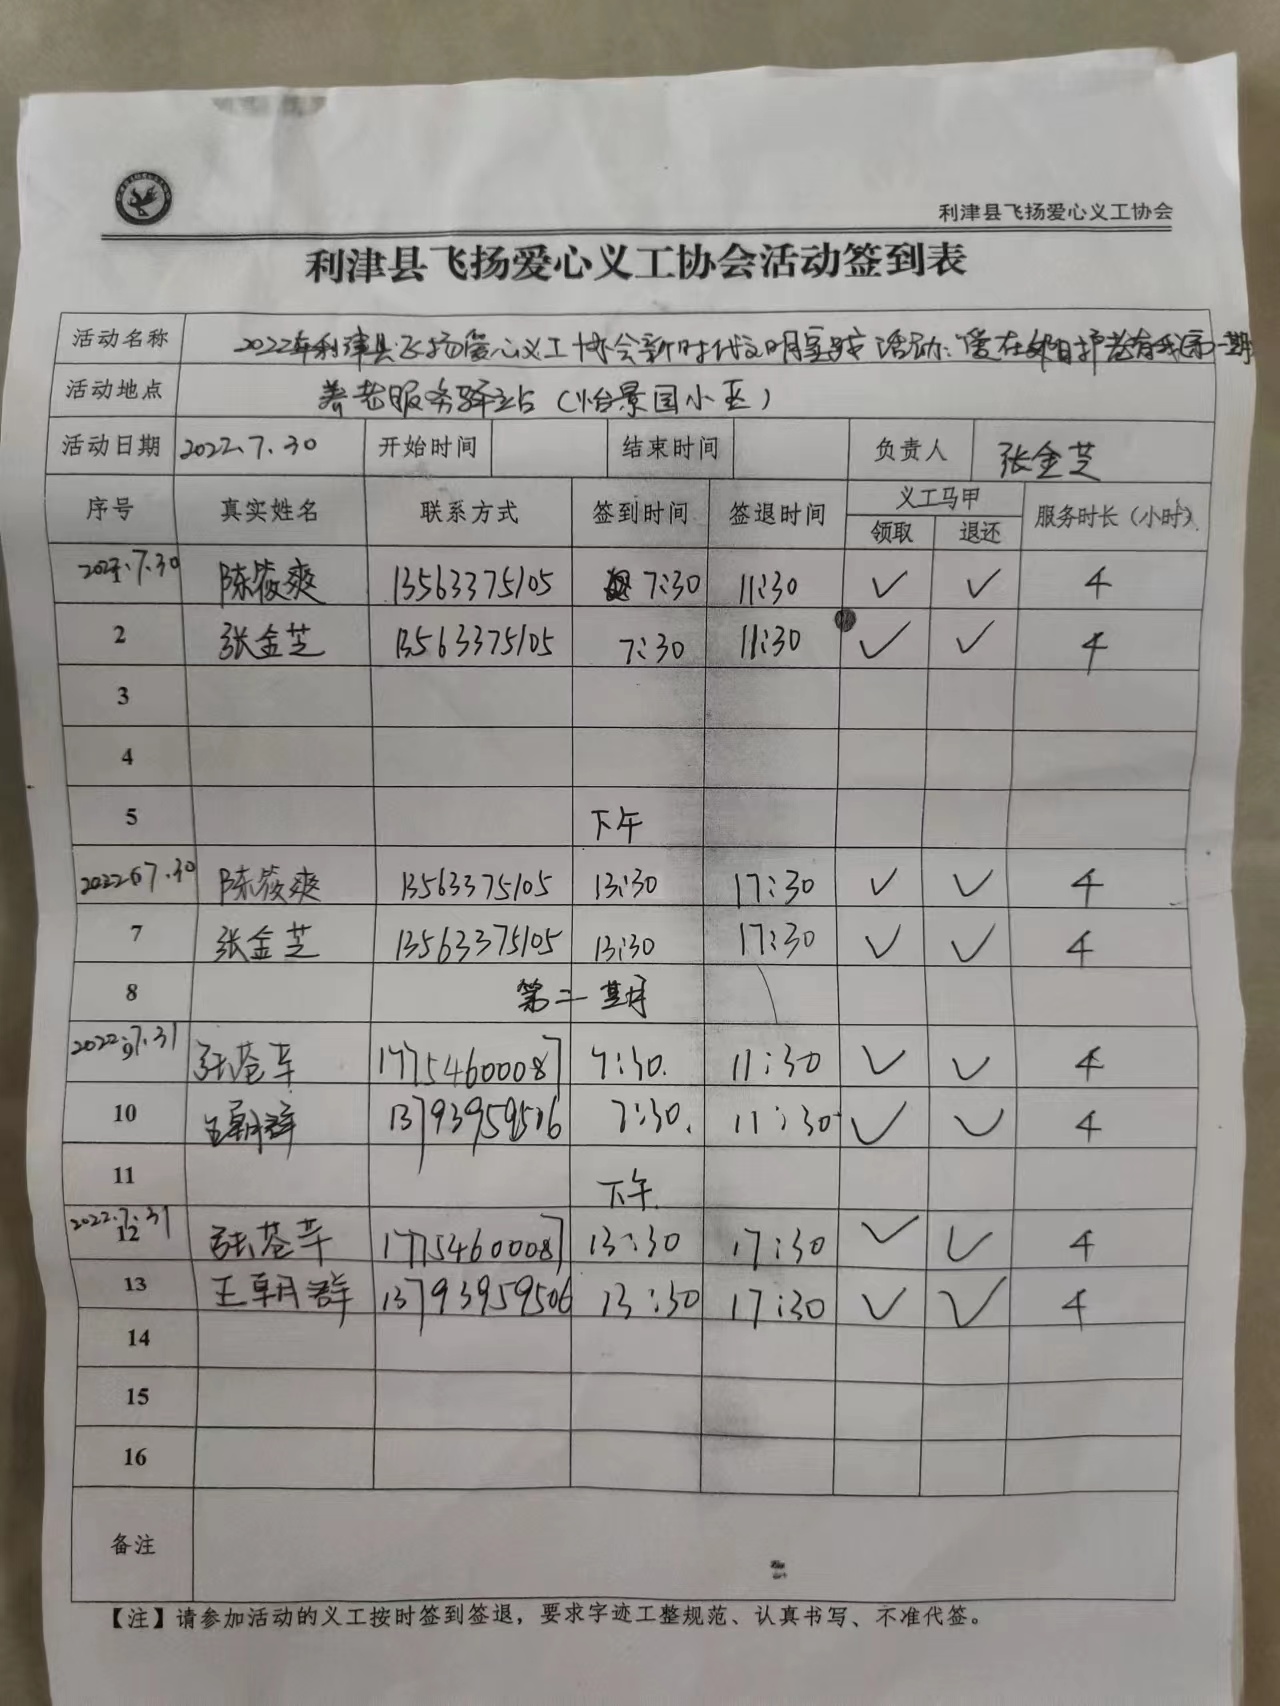 利津县飞扬爱心义工协会
利津县飞扬爱心义工协会活动签到表
活动名称 2022年利津县飞扬爱心义工协会新时代文明实践活动：爱在 有我第一期
活动地点 养老服务驿站（怡景园小区）
活动日期 2022.7.30 开始时间 结束时间 负责人 张金芝
序号 真实姓名 联系方式 签到时间 签退时间 义工马甲 服务时长（小时）
领取 退还
2022.7.30 陈筱爽 13563375105 7:30 11:30 ✓ ✓ 4
2 张金芝 13563375105 7:30 11:30 ✓ ✓ 4
3
4
5 下午
2022.7.30 6 陈筱爽 13563375105 13:30 17:30 ✓ ✓ 4
7 张金芝 13563375105 13:30 17:30 ✓ ✓ 4
8 第二期
2022.7.31 9 张苍 17754600087 7:30. 11:30 ✓ ✓ 4
10 王朝群 13793959506 7:30. 11:30 ✓ ✓ 4
11 下午.
2022.7.31 12 张苍 17754600087 13:30 17:30 ✓ ✓ 4
13 王朝群 13793959506 13:30 17:30 ✓ ✓ 4
14
15
16
备注
【注】请参加活动的义工按时签到签退，要求字迹工整规范、认真书写、不准代签。